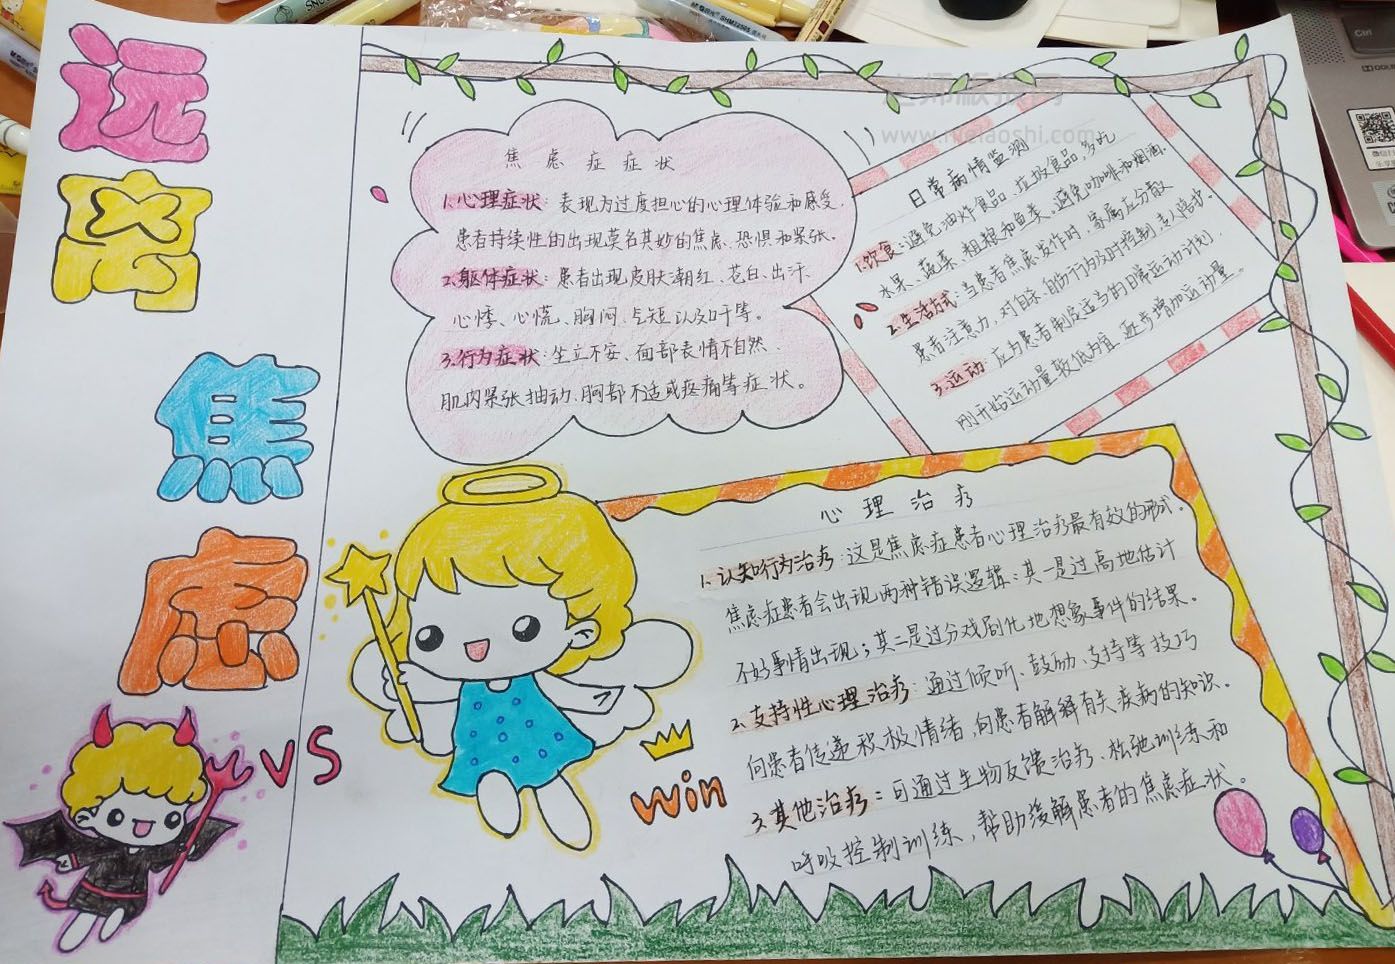 远
离
焦
虑
VS
win
焦虑症症状
1.心理症状：表现为过度担心的心理体验和感受，
患者持续性的出现莫名其妙的焦虑、恐惧和紧张。
2.躯体症状：患者出现皮肤潮红、苍白、出汗、
心悸、心慌、胸闷、气短以及头汗等。
3.行为症状：坐立不安、面部表情不自然、
肌肉紧张抽动、胸部不适或疼痛等症状。
日常病情监测
1.饮食：避免油炸食品、垃圾食品，多吃
水果、蔬菜、粗粮和鱼类、避免咖啡和烟酒。
2.生活方式：当患者焦虑发作时，家属应分散
患者注意力，对自杀、自伤行为及时控制，专人陪护。
3.运动：应为患者制定适当的日常运动计划，
刚开始运动量较低为宜，逐步增加运动量。
心理治疗
1.认知行为治疗：这是焦虑症患者心理治疗最有效的形式。
焦虑症患者会出现两种错误逻辑：其一是过高地估计
不好事情出现；其二是过分戏剧化地想象事件的结果。
2.支持性心理治疗：通过倾听、鼓励、支持等技巧
向患者传递积极情绪，向患者解释有关疾病的知识。
3.其他治疗：可通过生物反馈治疗、松弛训练和
呼吸控制训练，帮助缓解患者的焦虑症状。
老师板报网
Ctrl